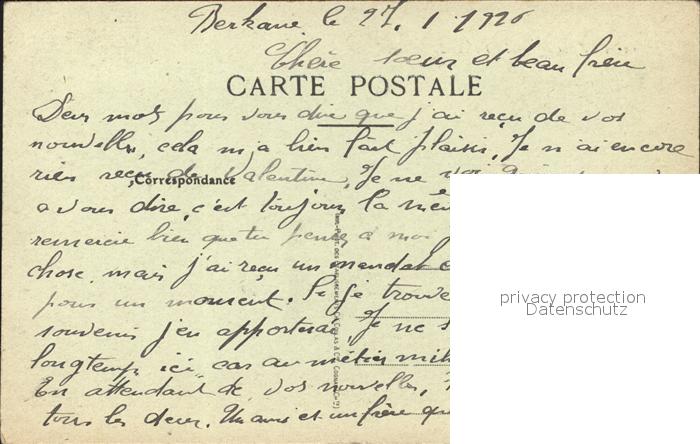 Berkane le 27. 1. 1926
Chère sœur et beau frère
CARTE POSTALE
Deux mots pour vous dire que j'ai reçu de vos
nouvelles, cela m'a bien fait plaisir, Je n'ai encore
rien reçu de Valentine, Je ne
Correspondance
a vous dire, c'est toujours la
remercie bien que tu pense a moi
chose, mais j'ai reçu un mandat
pour un moment. Si Je trouve
souvenir j'en apporterai, Je ne
longtemps ici, car au métier
En attendant de vos nouvelles,
tous les deux. Un ami et un frère
privacy protection
Datenschutz